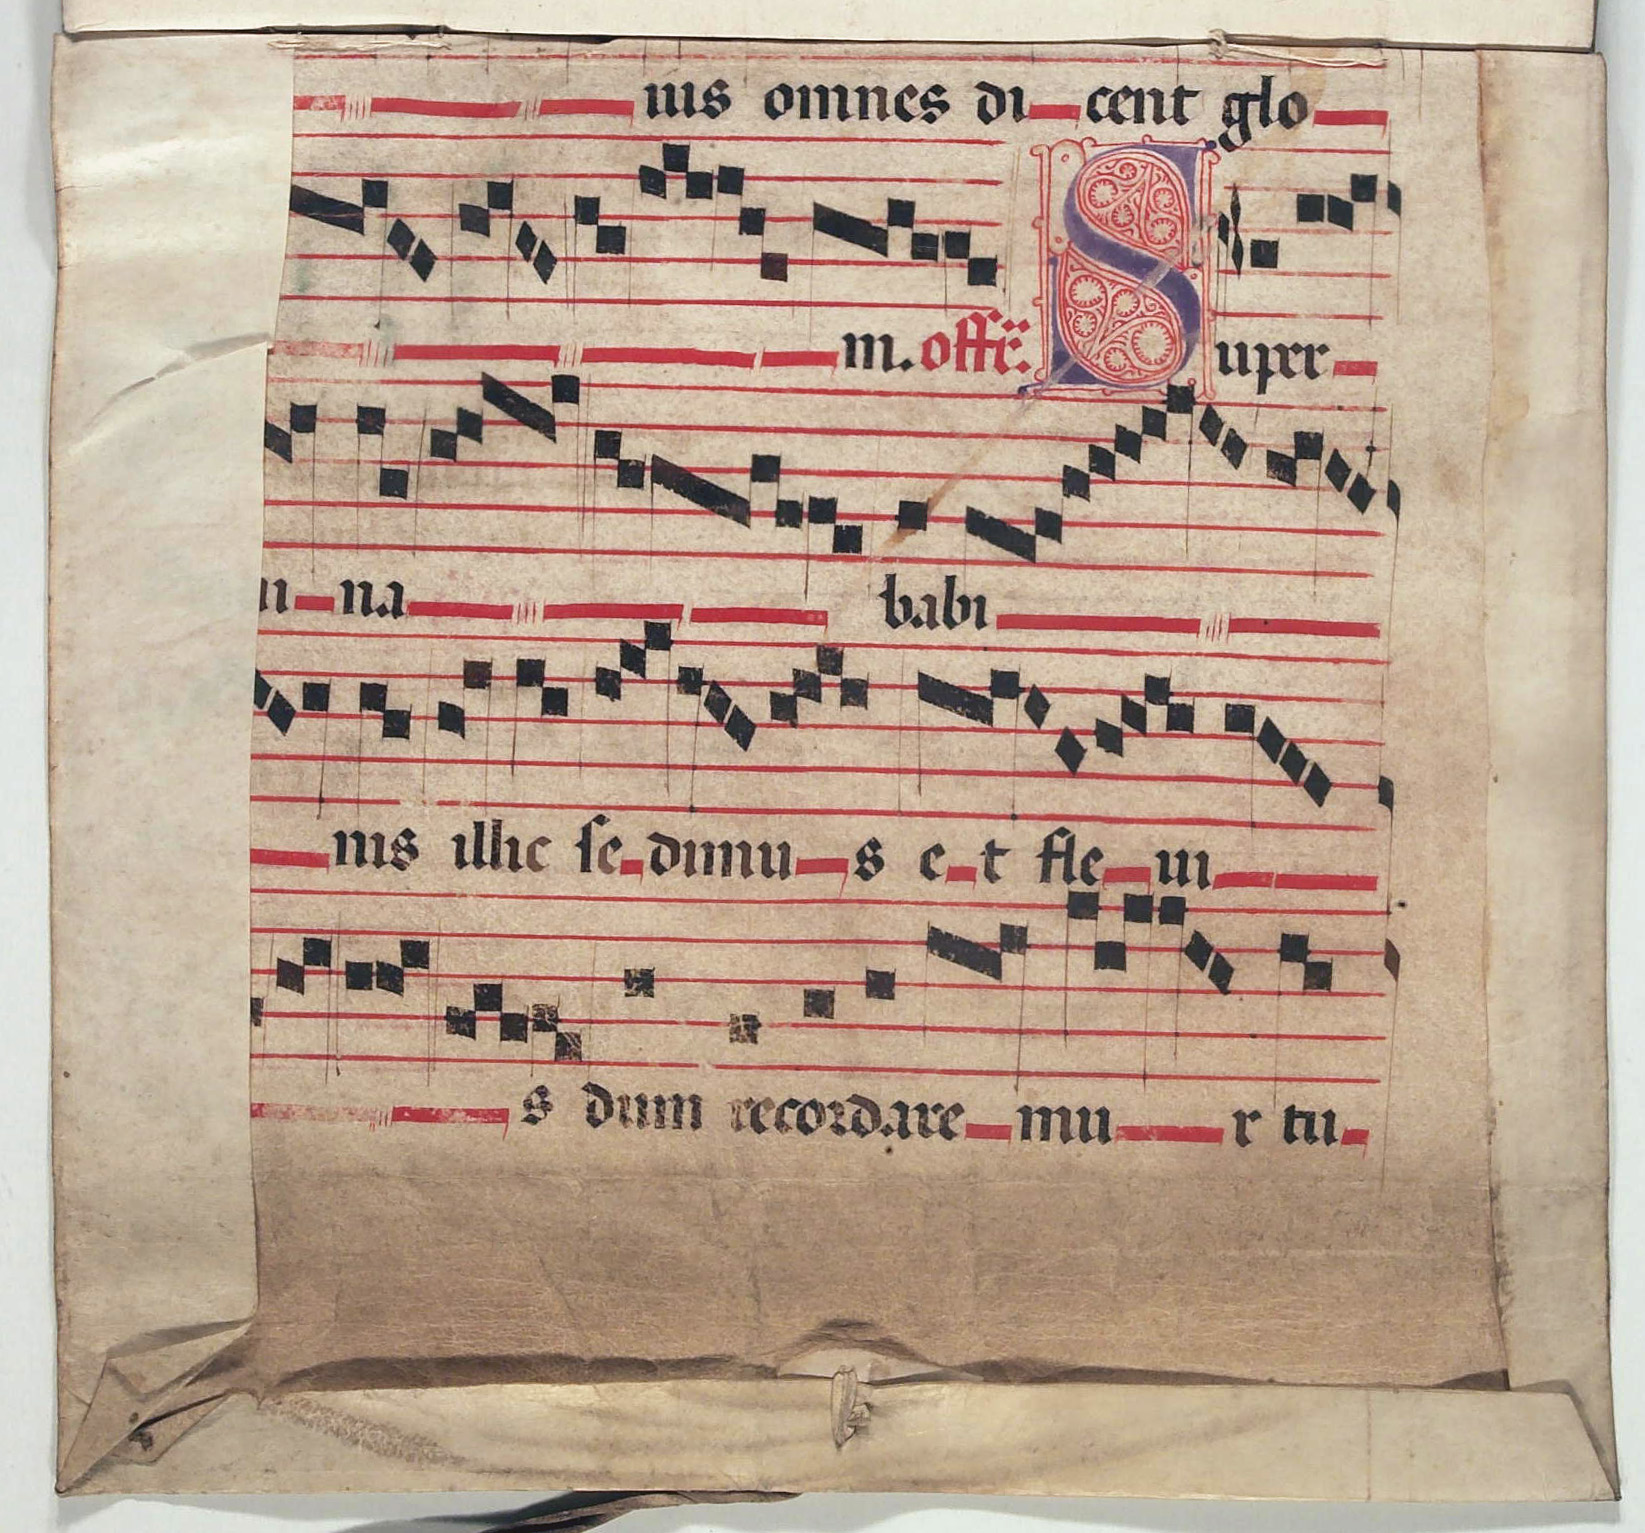 ius omnes di cent glo
m. offr. Super
mi na babi
nis illic se dimu s e t fle ui
s dum recordare mu r tu